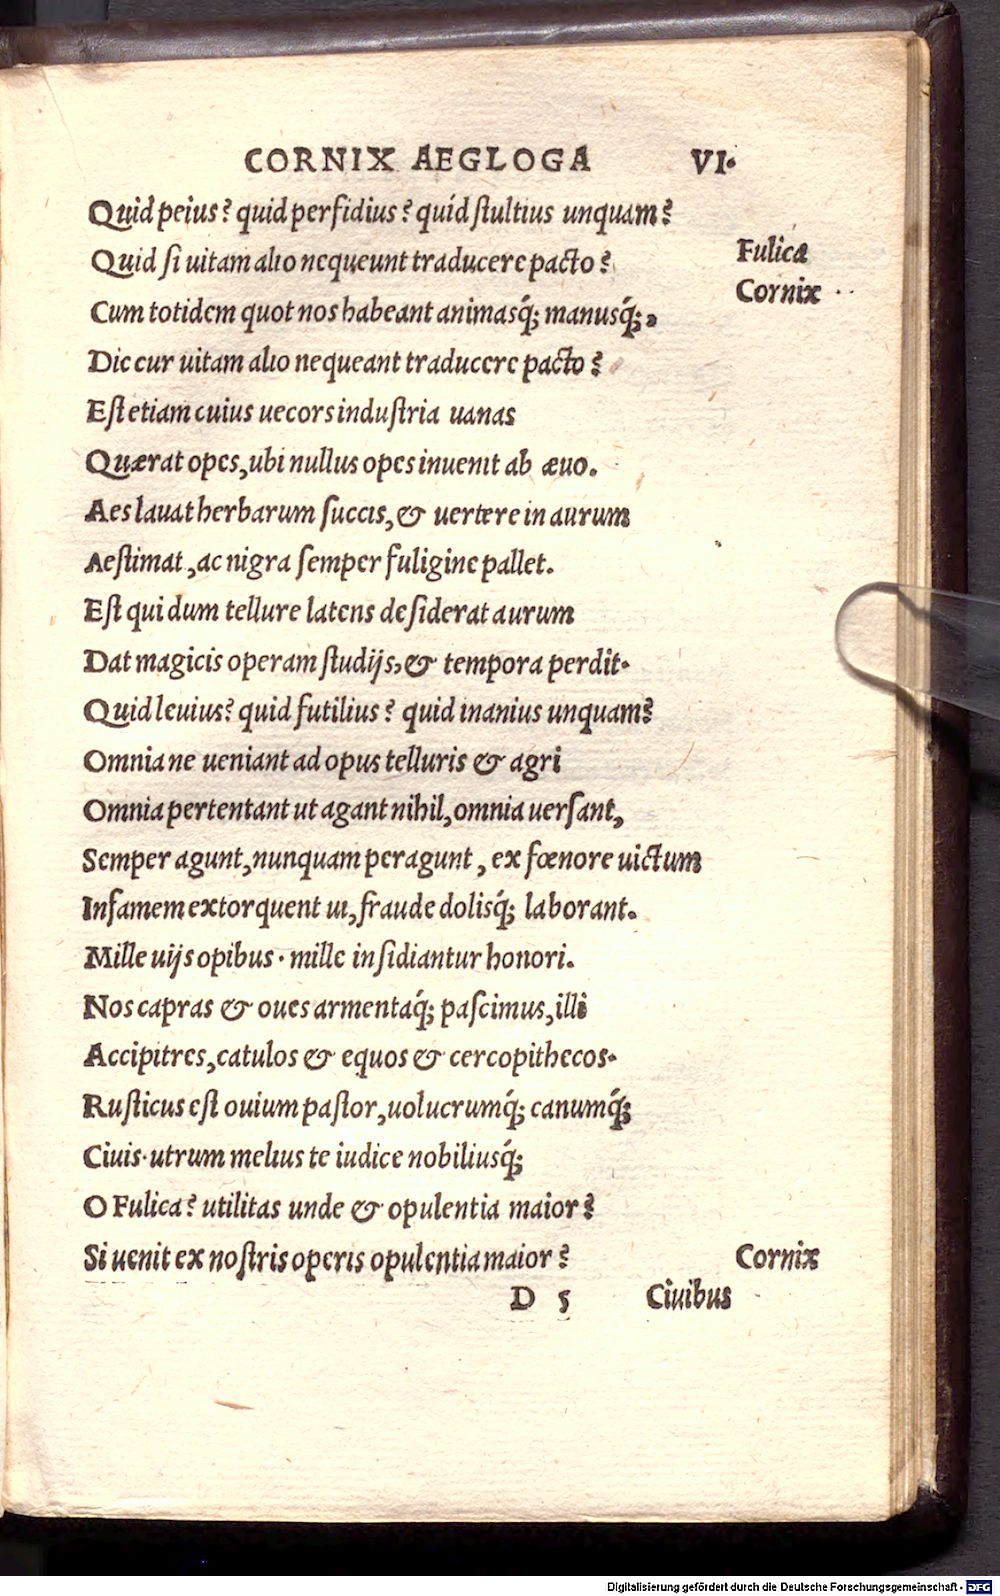 CORNIX AEGLOGA VI.
Quid peius? quid perfidius? quid ſtultius unquam?
Quid ſi uitam alio nequeunt traducere pacto? Fulica
Cum totidem quot nos habeant animasq́; manusq́;, Cornix
Dic cur uitam alio nequeant traducere pacto?
Eſt etiam cuius uecors induſtria uanas
Quærat opes, ubi nullus opes inuenit ab æuo.
Aes lauat herbarum ſuccis, & uertere in aurum
Aeſtimat, ac nigra ſemper fuligine pallet.
Eſt qui dum tellure latens deſiderat aurum
Dat magicis operam ſtudijs, & tempora perdit.
Quid leuius? quid futilius? quid inanius unquam?
Omnia ne ueniant ad opus telluris & agri
Omnia pertentant ut agant nihil, omnia uerſant,
Semper agunt, nunquam peragunt, ex fœnore uictum
Infamem extorquent ui, fraude dolisq́; laborant.
Mille uijs opibus. mille inſidiantur honori.
Nos capras & oues armentaq́; paſcimus, illi
Accipitres, catulos & equos & cercopithecos.
Ruſticus eſt ouium paſtor, uolucrumq́; canumq́;
Ciuis. utrum melius te iudice nobiliusq́;
O Fulica? utilitas unde & opulentia maior?
Si uenit ex noſtris operis opulentia maior? Cornix
D 5 Ciuibus
Digitalisierung gefördert durch die Deutsche Forschungsgemeinschaft - DFG